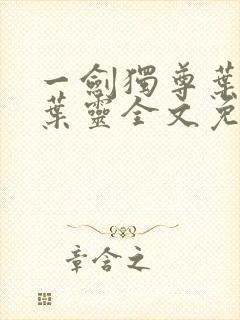 一劍獨尊葉
葉靈全文免
章含之